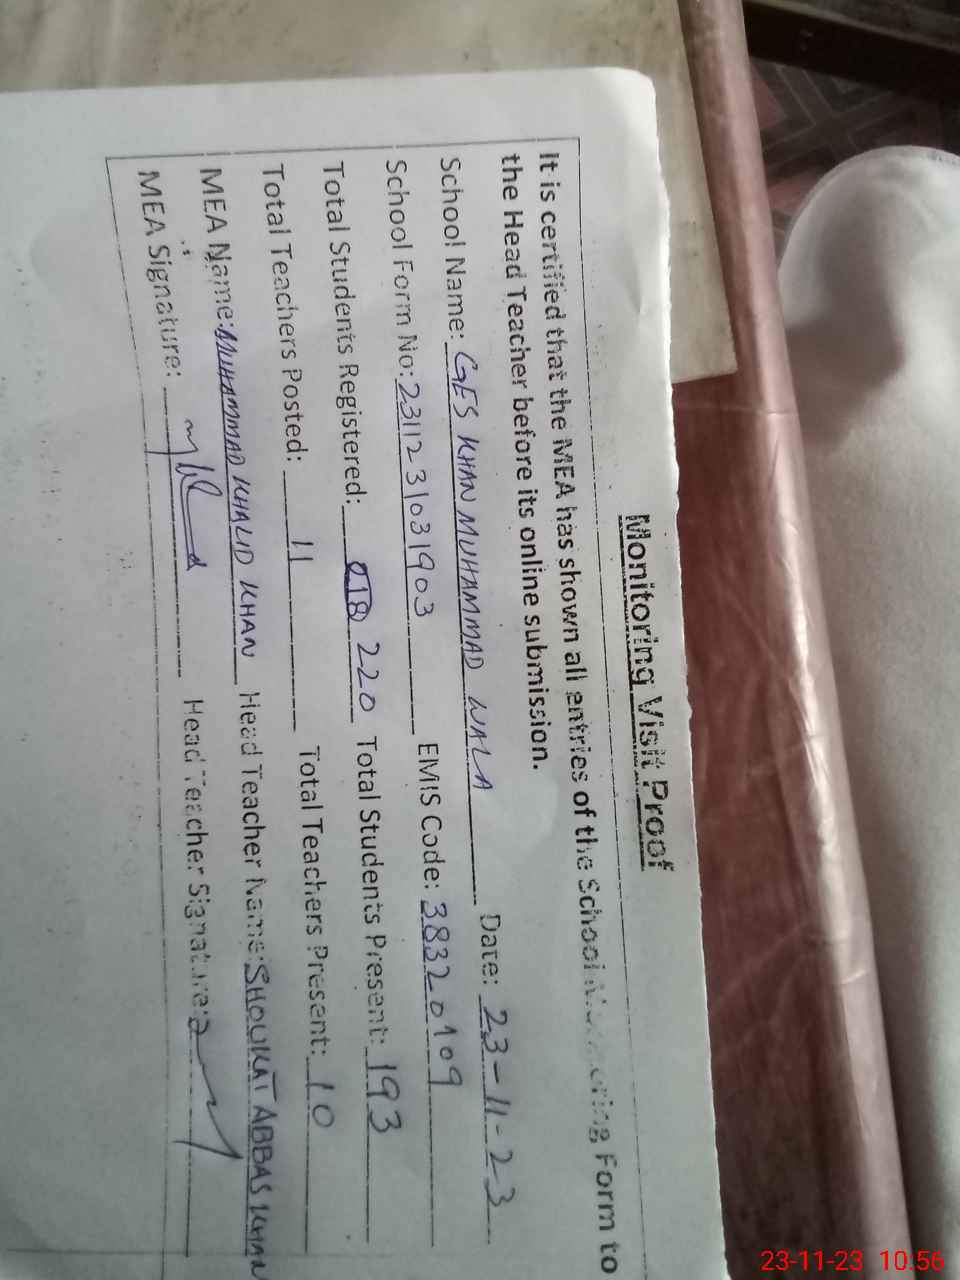 Monitoring Visit Proof
It is certified that the MEA has shown all entries of the School Monitoring Form to
the Head Teacher before its online submission.
School Name: GES KHAN MUHAMMAD WALA Date: 23-11-23
School Form No: 231123101903 EMIS Code: 38320109
Total Students Registered: 220 Total Students Present: 193
Total Teachers Posted: 11 Total Teachers Present: 10
MEA Name: MUHAMMAD KHALID KHAN Head Teacher Name: SHOUKAT ABBAS KHAN
MEA Signature: Head Teacher Signature:
23-11-23 10:56